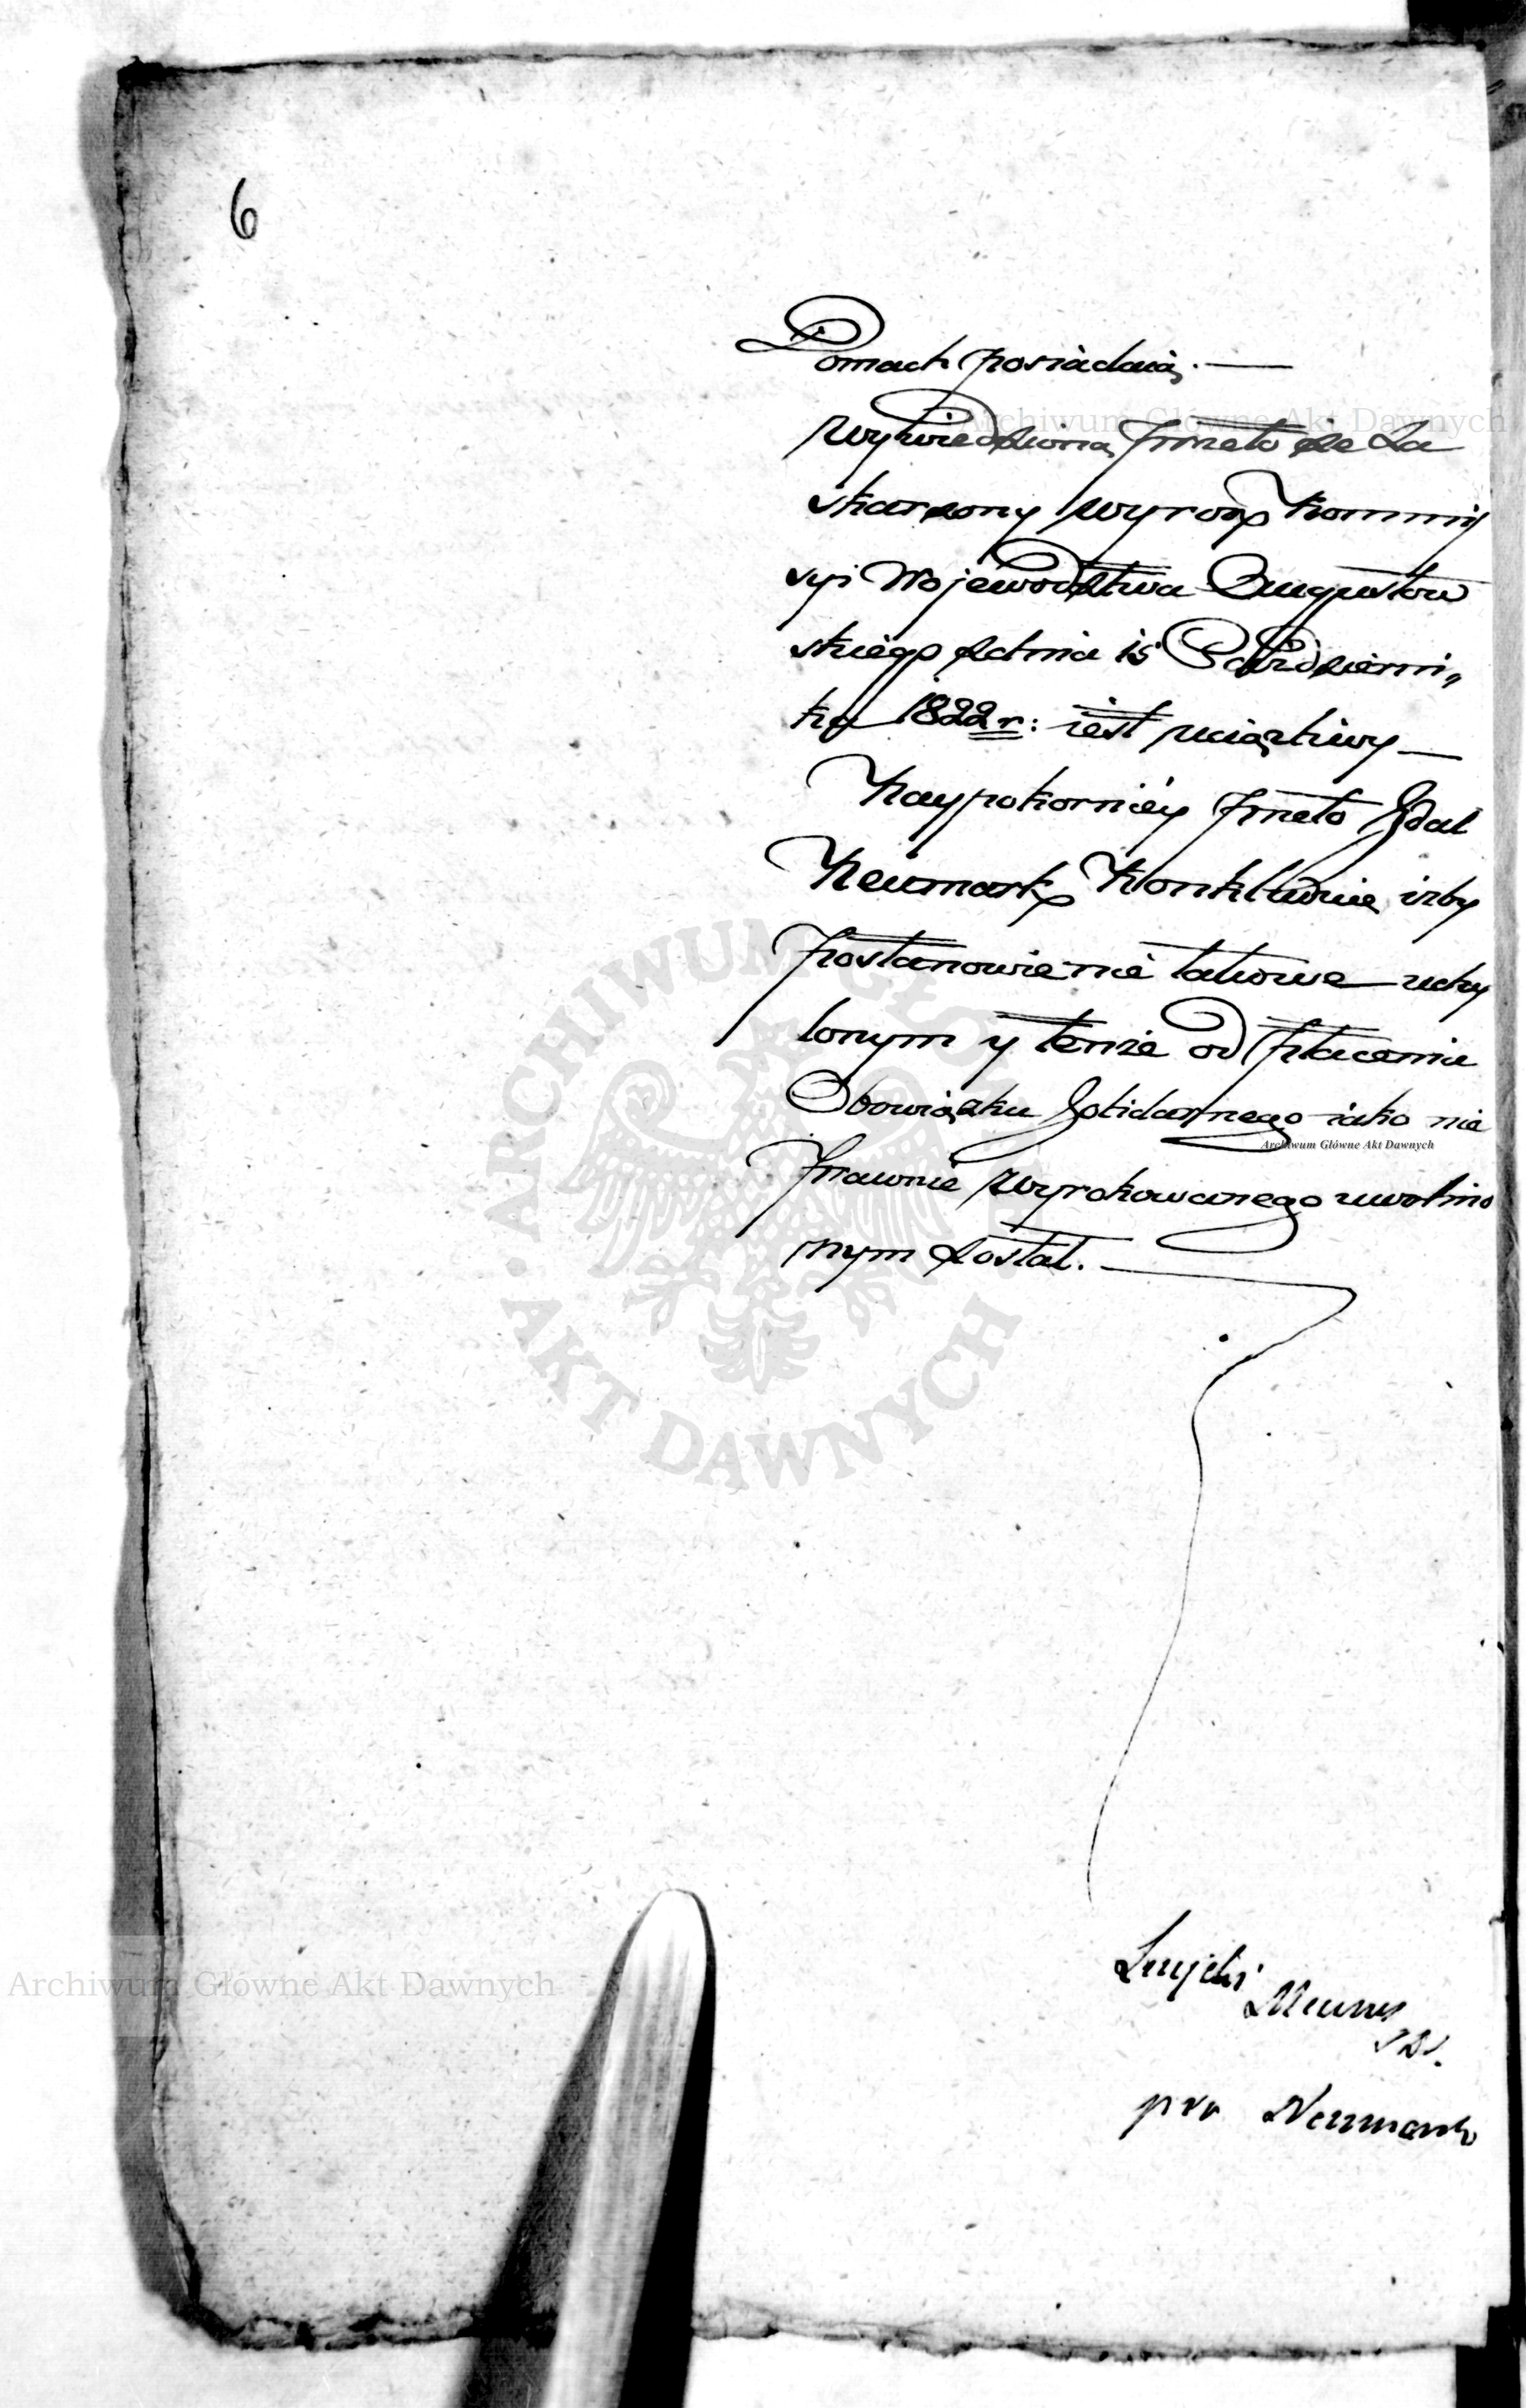 6
Domach posiadaią. —
Wywiedzioną przeto że za
skarżony wyrok Kommis
syi Województwa Augustow
skiego z dnia 15 Październi„
ka 1822 r: iest uciążliwy —
Naypokorniéy przeto Żÿd
Neumark Konkluduie, iżby
postanowienie takowe uchy
lonym y tenże od płacenia
Obowiązku Solidarnego iako nie
prawnie wyrokowanego uwolnio
nym został. —
pro Neumark
Archiwum Główne Akt Dawnych
Archiwum Główne Akt Dawnych
Archiwum Główne Akt Dawnych
ARCHIWUM GŁÓWNE AKT DAWNYCH